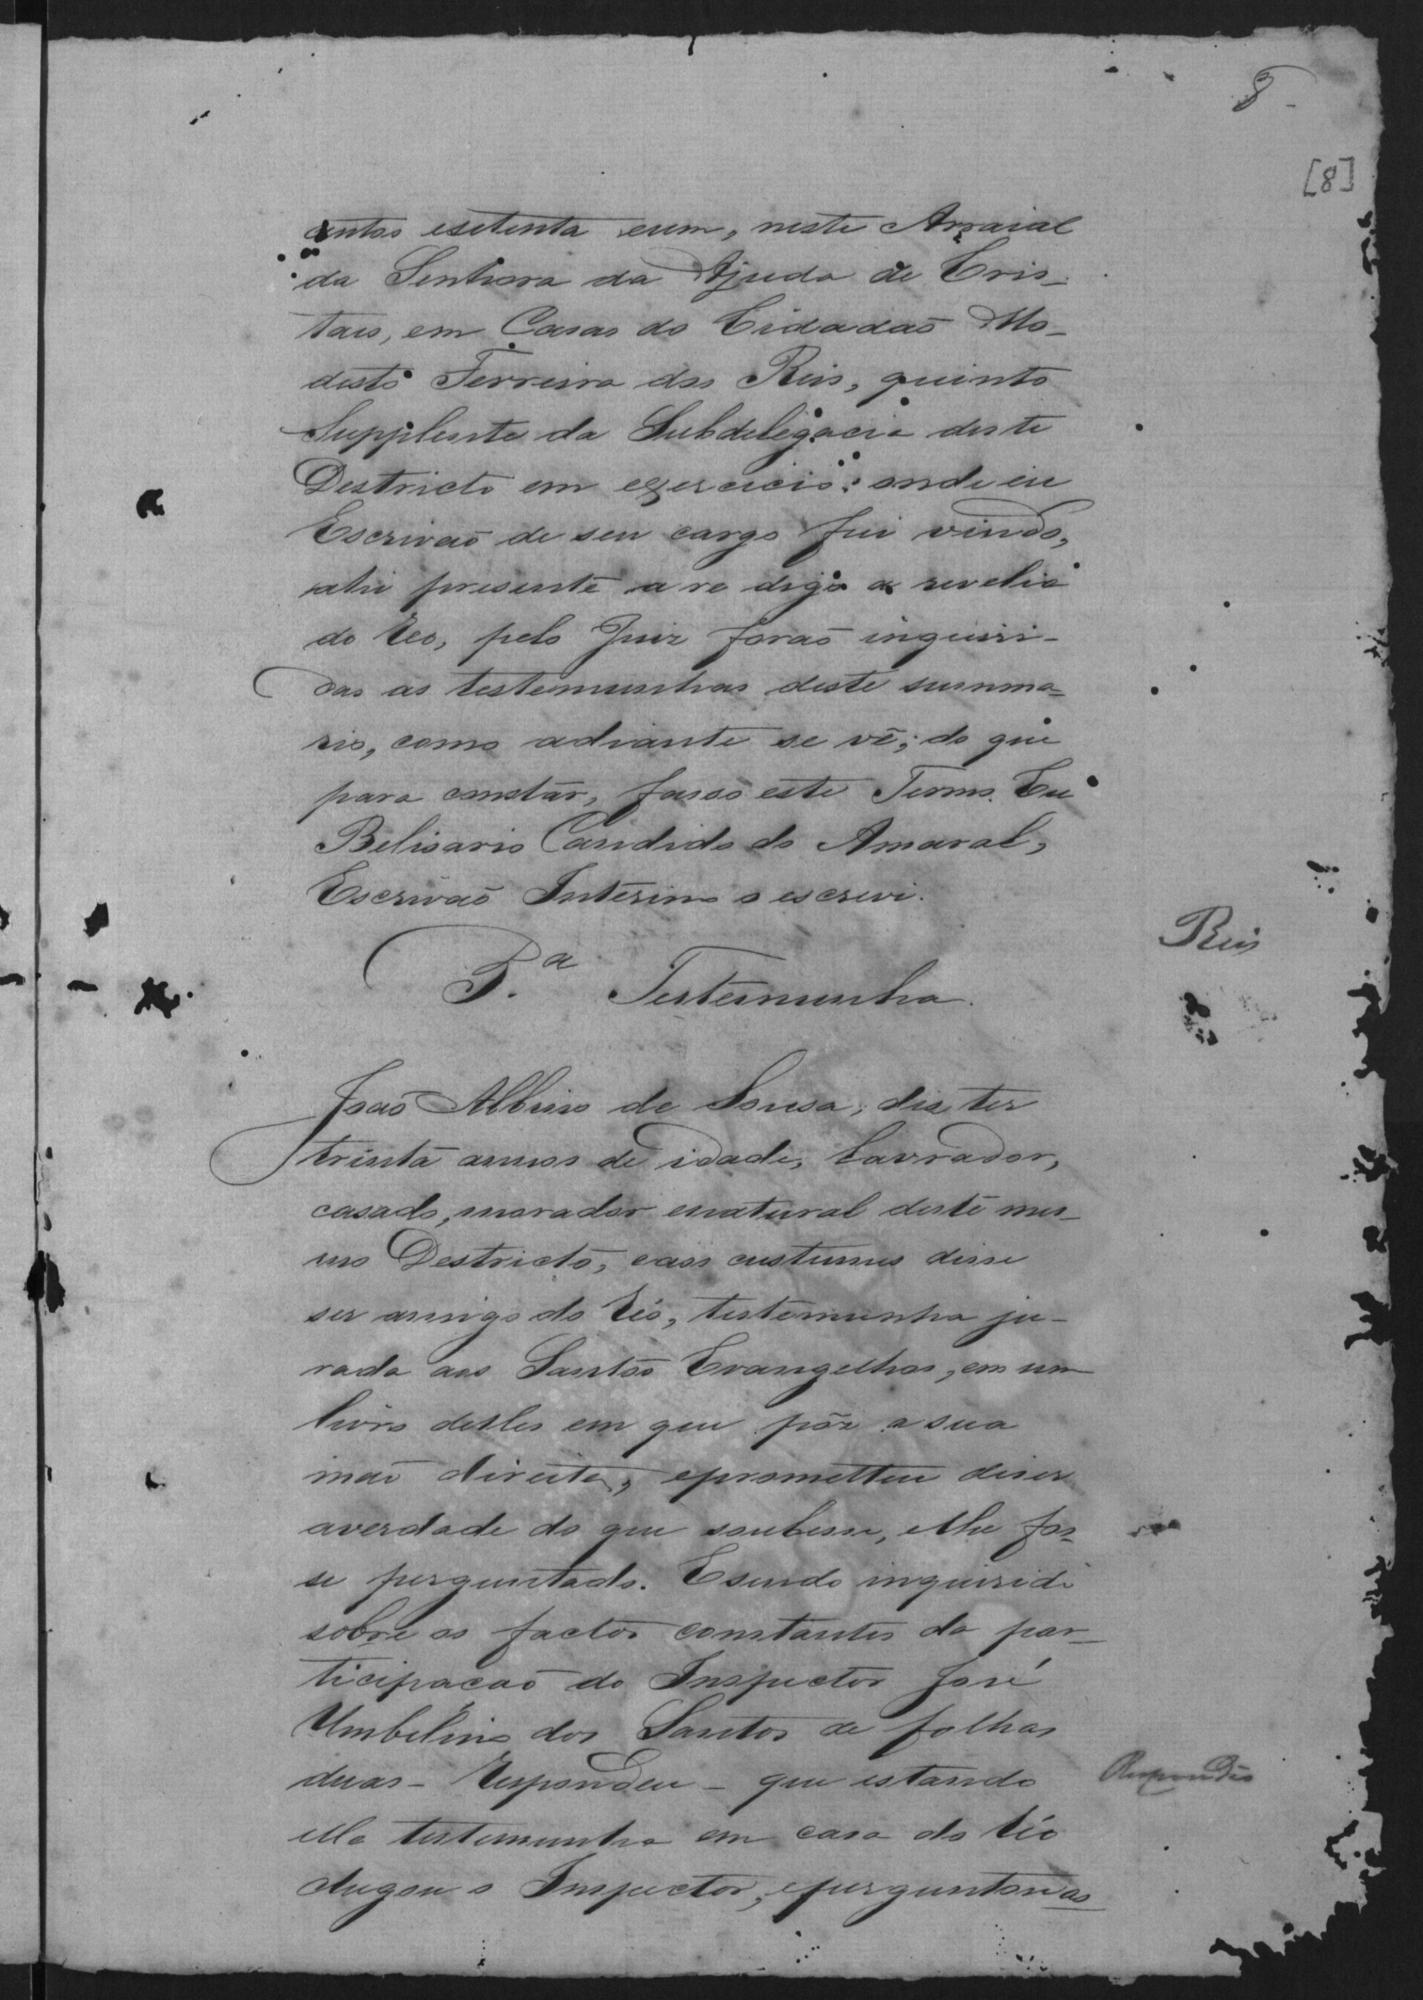 8
[8]
centos esetenta eum, neste Arraial
da Senhora da Ajuda de Cris-
taes, em Casas do Cidadaõ Mo-
desto Ferreira dos Reis, quinto
Supplente da Subdelegacia deste
Destricto em exercicio: onde eu
Escrivaõ de seu cargo fui vindo,
ahi presente a re digo a revelia
do Reo, pelo Juiz foraõ inquiri-
das as testemunhas deste summa-
rio, como adiante se vê; do que
para constar, fasso este Termo. Eu
Belisario Candido do Amaral,
Escrivaõ Interino o escrevi.
Reis
P.a Testemunha.
Joaõ Albino de Sousa, dis ter
trinta annos de idade, lavrador,
casado, morador enatural deste mes-
mo Destricto, eaos custumes disse
ser amigo do Réo, testemunha ju-
rada aos Santos Evangelhos, em um
livro delles em que pôz a sua
maõ direita, eprometteu diser
averdade do que soubesse, elhe fos-
se perguntado. Esendo inquirido
sobre os factos constantes da par-
ticipacaõ do Inspector José
Umbelino dos Santos de folhas
duas - Respondeu - que estando
Respondêo
elle testemunha em casa do Réo
chegou o Inspector, eperguntou ao